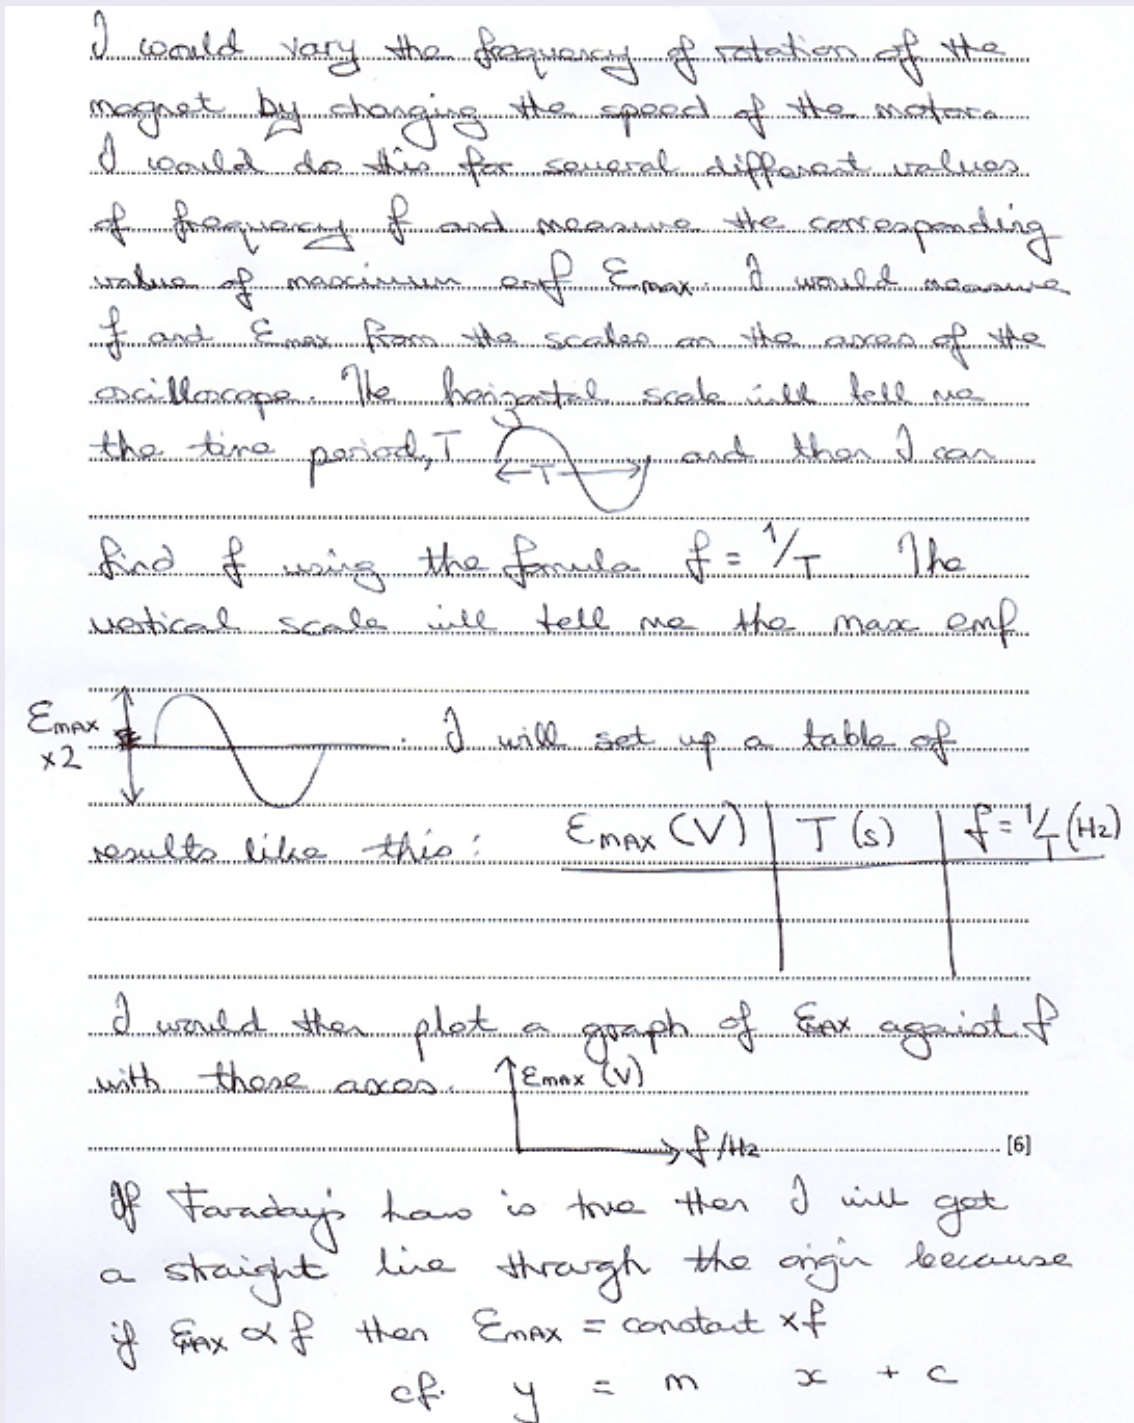 I would vary the frequency of rotation of the
magnet by changing the speed of the motor.
I would do this for several different values
of frequency f and measure the corresponding
value of maximum emf Ɛmax. I would measure
f and Ɛmax from the scales on the axes of the
oscilloscope. The horizontal scale will tell me
the time period, T ←T→ and then I can
find f using the formula f = 1/T. The
vertical scale will tell me the max emf
ƐMAX
x2
. I will set up a table of
results like this: ƐMAX (V) T (s) f = 1/T (Hz)
I would then plot a graph of ƐMAX against f
with these axes. ƐMAX (V)
f /Hz [6]
If Faraday's Law is true then I will get
a straight line through the origin because
if ƐMAX ∝ f then ƐMAX = constant x f
cf. y = m x + c